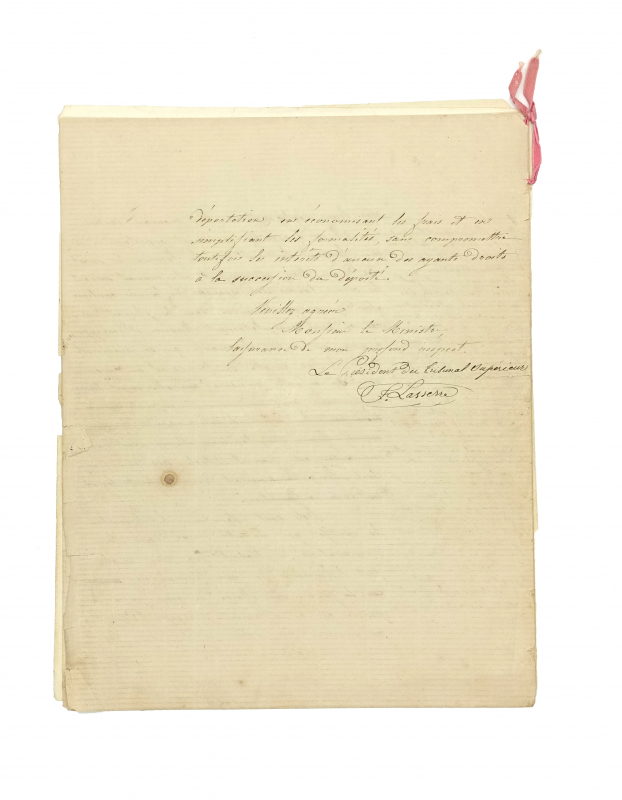 déportation, en économisant les frais et en
simplifiant les formalités, sans compromettre
toutefois les intérêts d'aucun des ayants droits
à la succession du déporté.
Veuillez agréer
Monsieur le Ministre,
l'assurance de mon profond respect.
Le Président du Tribunal Supérieur
F. Lasserre